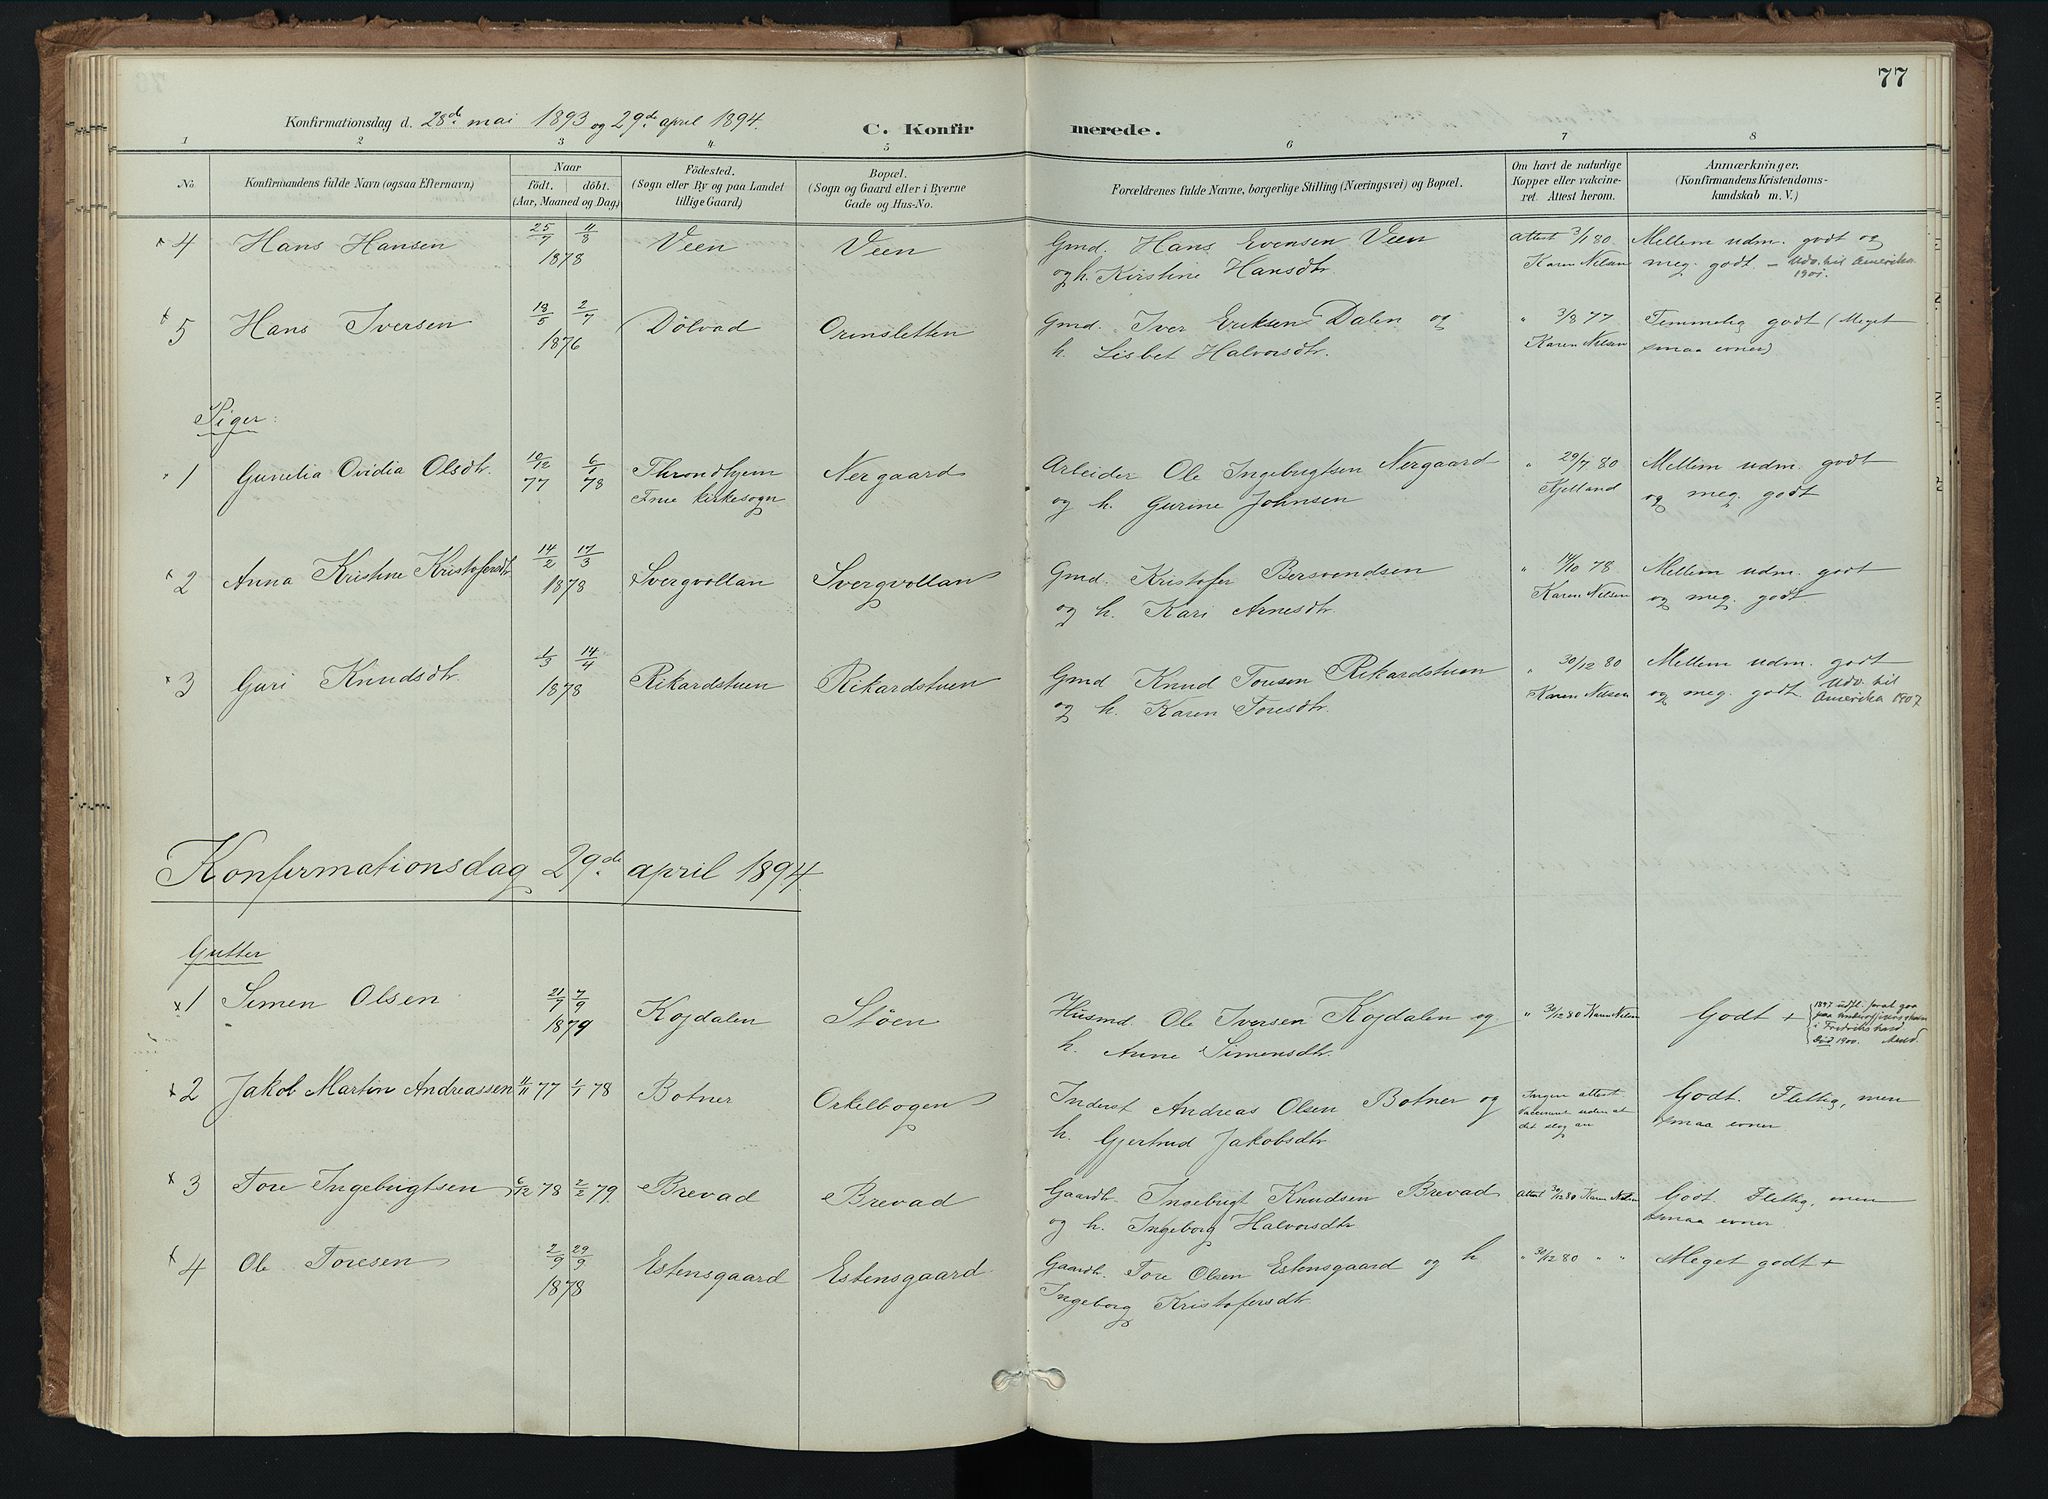 77
Konfirmationsdag d. 28de mai 1893 og 29de april 1894.
C. Konfirmerede.
1 2 3 4 5 6 7 8
No
Konfirmandens fulde Navn (ogsaa Efternavn)
Naar
født. døbt.
(Aar, Maaned og Dag)
Födested.
(Sogn eller By og paa Landet
tillige Gaard)
Bopæl.
(Sogn og Gaard eller i Byerne
Gade og Hus-No.
Forældrenes fulde Navne, borgerlige Stilling (Næringsvei) og Bopæl.
Om havt de naturlige
Kopper eller vakcine-
ret. Attest herom.
Anmærkninger.
(Konfirmandens Kristendoms-
kundskab m. V.)
4 Hans Hansen 25/7 11/8 Veen Veen Gmd. Hans Evensen Veen attest 3/1 80 Mellem udm. godt og
1878 og h. Kirstine Hansdtr Karen Nelsen meg. godt. - Udv. til Amerika
1901.
5 Hans Iversen 18/5 2/7 Dölvad Orensletten Gmd. Iver Eriksen Dalen og " 3/8 77 Temmelig godt (Meget
1876 h. Lisbet Halvorsdtr. Karen Nelsen smaa evner)
Piger:
1 Gunelia Ovidia Olsdtr. 10/12 6/1 Throndhjem Nergaard Arbeider Ole Ingebrigtsen Nergaard " 29/7 80 Mellem udm. godt
77 78 Frue kirkesogn og h. Gurine Johnsen Kjelland og meg. godt
2 Anna Kristine Kristofersdtr 14/2 17/3 Svergvollan Svergvollan Gmd. Kristofer Bersvendsen " 14/10 78 Mellem udm. godt
1878 og h. Kari Arnesdtr Karen Nelsen og meg. godt
3 Guri Knudsdtr. 1/3 14/4 Rikardstuen Rikardstuen Gmd Knud Toresen Rikardstuen " 30/12 80 Mellem udm. godt
1878 og h. Karen Toresdtr. Karen Nelsen og meg. godt. Udv. til
Amerika 1907
Konfirmationsdag 29de april 1894.
Gutter
1 Simen Olsen 21/7 7/9 Kojdalen Støen Husmd. Ole Iversen Kojdalen og " 30/12 80 Karen Nelsen Godt +
1879 h. Anne Simensdtr.
1897 udfl. forat gaa
paa
i Fredrikshald.
Død 1900.
2 Jakob Martin Andreassen 11/11 77 1/1 78 Botner Orkelbogen Inderst Andreas Olsen Botner og Ingen attest. Godt. Flittig, men
h. Gjertrud Jakobsdtr Vaccineret uden at smaa evner.
det slog an
3 Tore Ingebrigtsen 6/12 78 2/2 79. Brevad Brevad Gaardbr. Ingebrigt Knudsen Brevad attest 30/12 80 Karen Nelsen Godt. Flittig, men
og h. Ingeborg Halvorsdtr smaa evner.
4 Ole Toresen 2/9 29/9 Estensgaard Estensgaard Gaardbr. Tore Olsen Estensgaard og h " 30/12 80 " " Meget godt +
1878 Ingeborg Kristofersdtr.